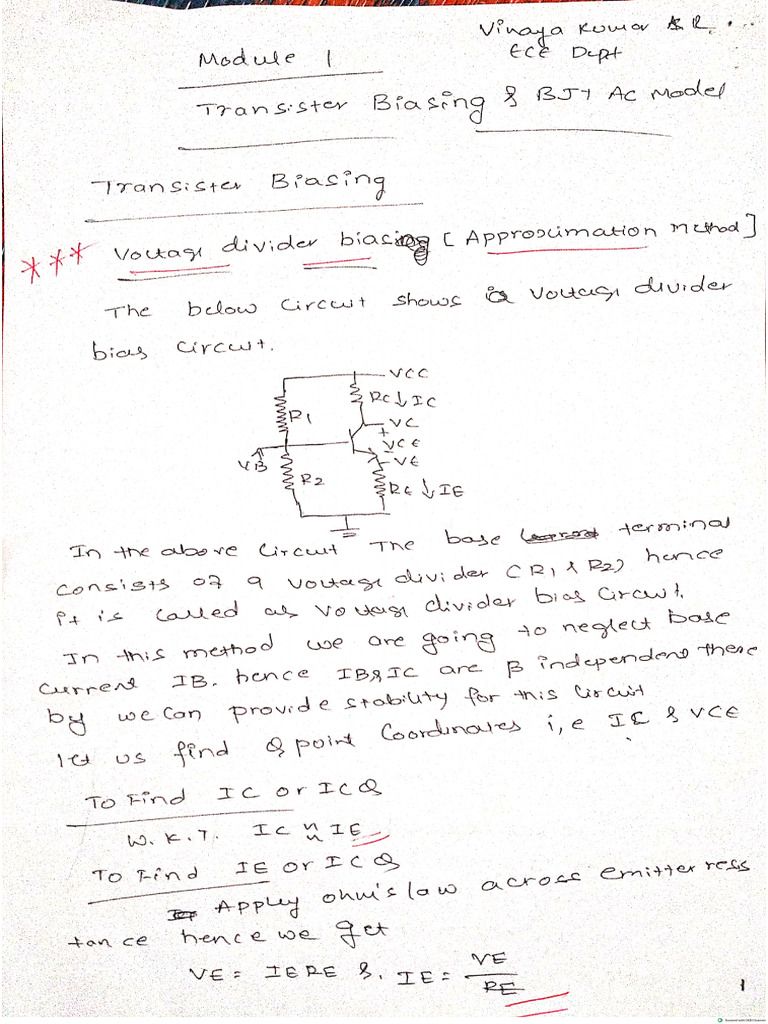 Vinaya Kumar S R.
ECE Dept
Module 1
Transister Biasing & BJT AC Model
Transister Biasing
*** Voltage divider biasing [Approximation method]
The below circuit shows a voltage divider
bias circuit.
VCC
RC ↓ IC
R1
VC
+
VCE
-
VB
VE
R2
RE ↓ IE
In the above circuit The base terminal
consists of a voltage divider (R1 & R2) hence
it is called as voltage divider bias circuit.
In this method we are going to neglect base
current IB. hence IB & IC are β independent there
by we can provide stability for this circuit
let us find Q point coordinates i,e IC & VCE
To Find IC or ICQ
W.K.T. IC ≈ IE
To Find IE or ICQ
Apply ohm's law across emitter ress
tance hence we get
VE = IERE &. IE = VE/RE
1